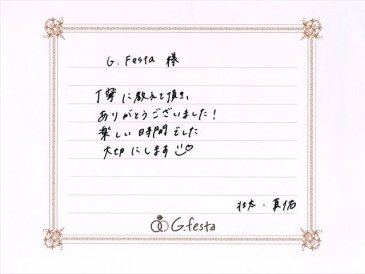 G. Festa 様
丁寧に教えて頂き、
ありがとうございました!
楽しい時間でした
大切にします
G.festa